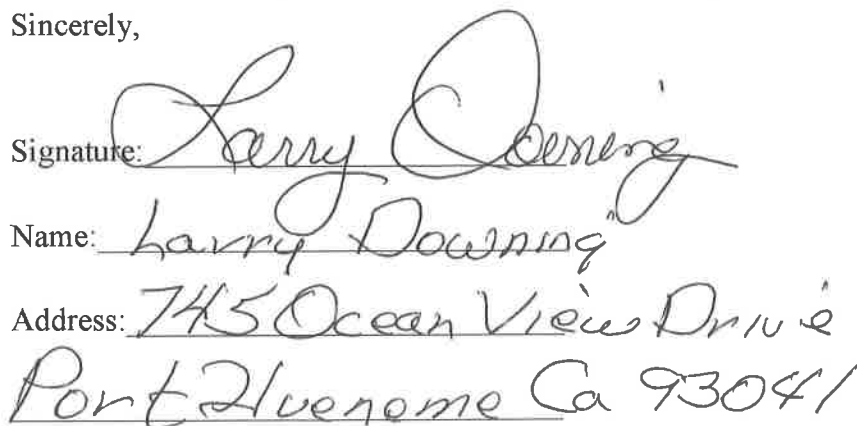 Sincerely,
Signature: Larry Downing
Name: Larry Downing
Address: 745 Ocean View Drive
Port Hueneme Ca 93041